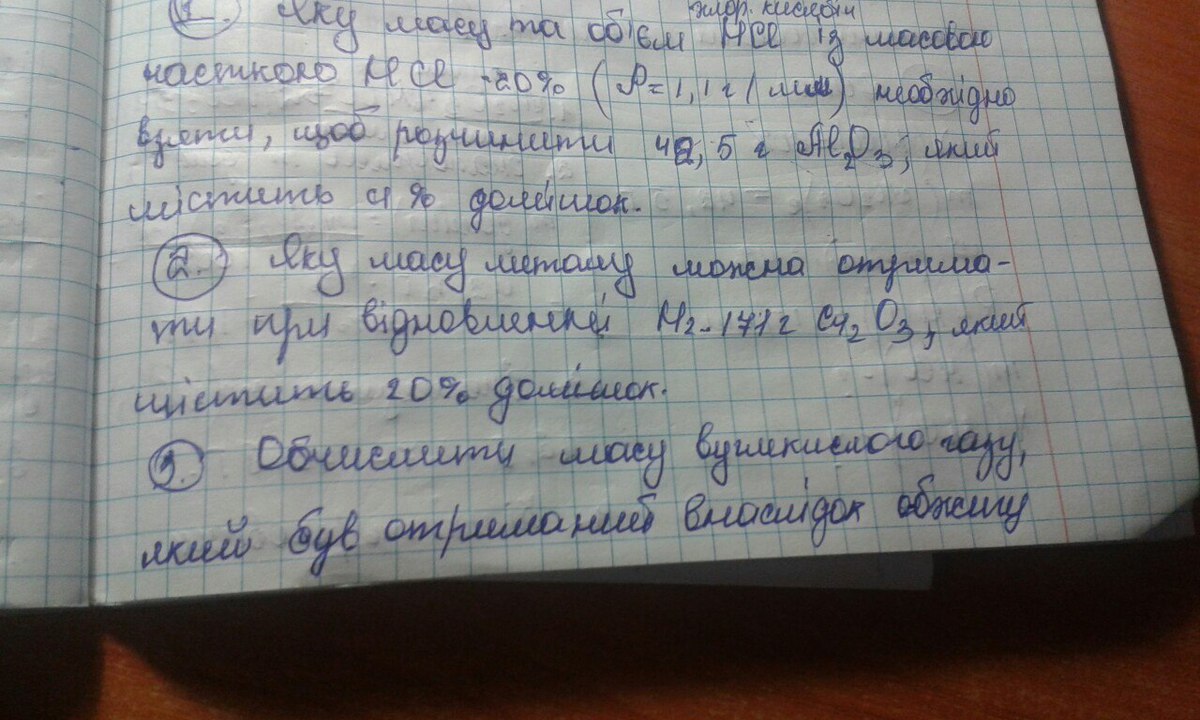 хлор. кислоти
1. Яку масу та об'єм HCl із масовою
часткою HCl -20% (ρ=1,1 г/мл) необхідно
взяти, щоб розчинити 42,5 г Al2O3, який
містить 4% домішок.
2. Яку масу металу можна отрима-
ти при відновленні H2-171 г Cr2O3, який
містить 20% домішок.
3. Обчислити масу вуглекислого газу,
який був отриманий внаслідок обжигу